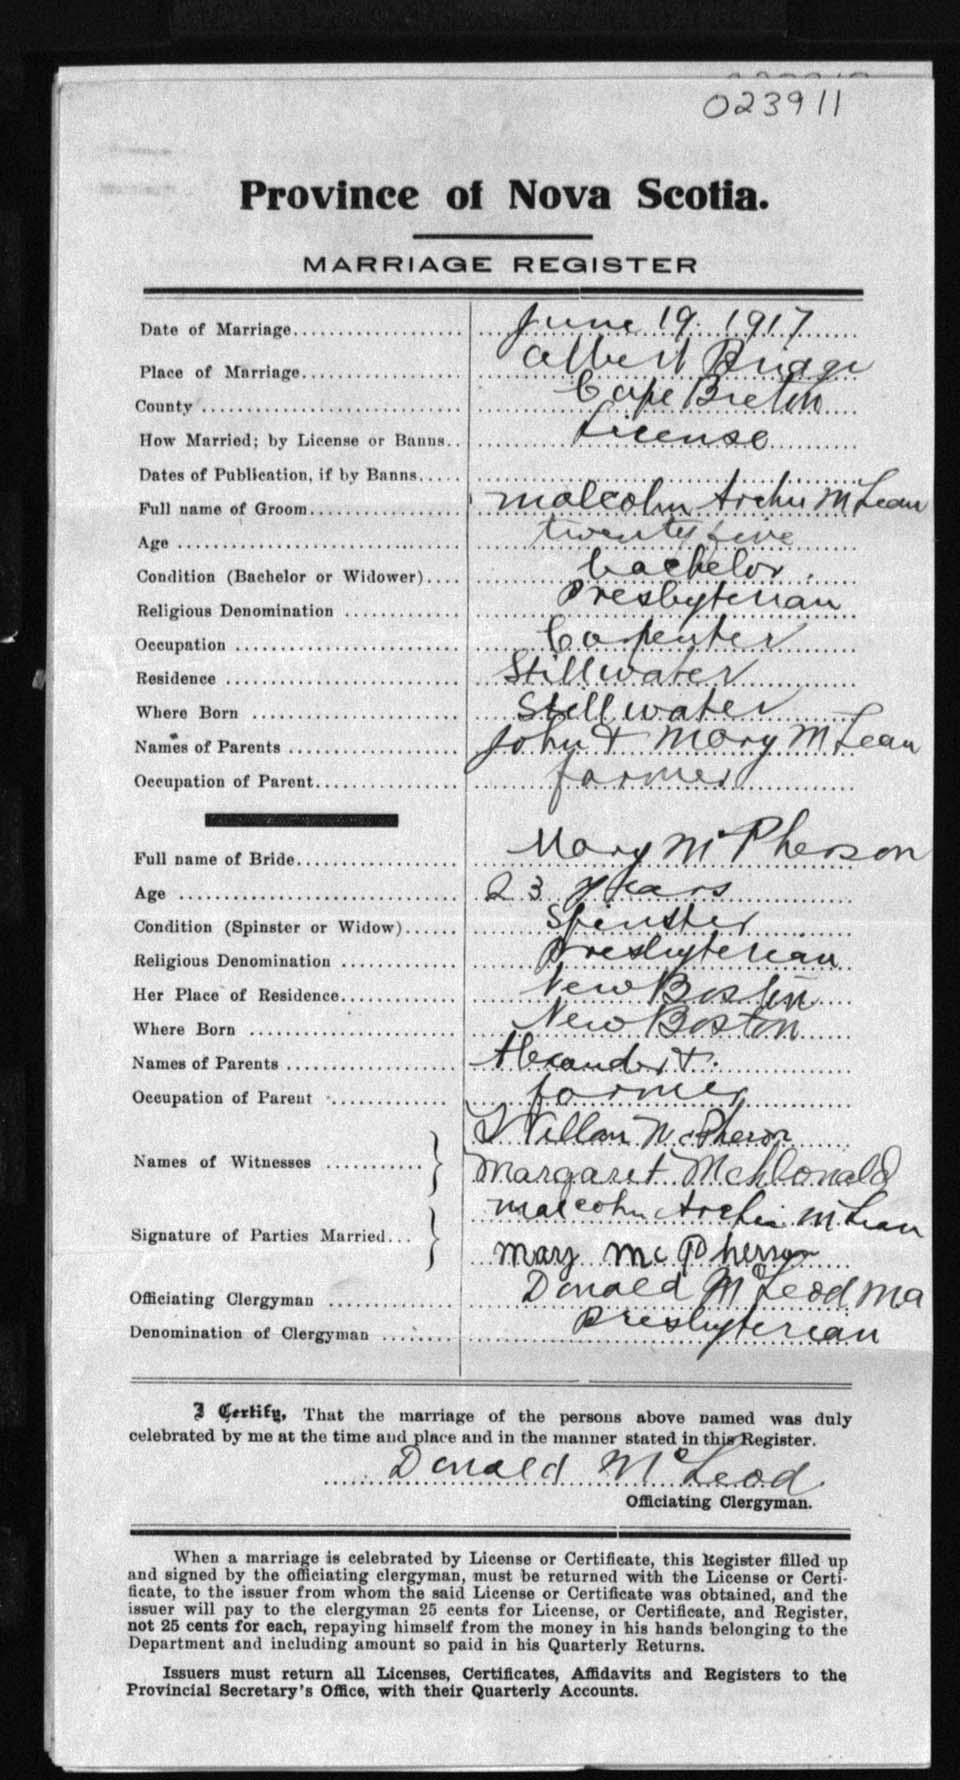 023911
Province of Nova Scotia.
MARRIAGE REGISTER
Date of Marriage June 19. 1917
Place of Marriage Albert Bridge
County Cape Breton
How Married; by License or Banns License
Dates of Publication, if by Banns
Full name of Groom Malcolm Archie McLean
Age twenty five
Condition (Bachelor or Widower) bachelor.
Religious Denomination Presbyterian
Occupation Carpenter
Residence Stillwater
Where Born Stillwater
Names of Parents John & Mary McLean
Occupation of Parent farmer
Full name of Bride Mary McPherson
Age 23 years
Condition (Spinster or Widow) Spinster
Religious Denomination Presbyterian
Her Place of Residence New Boston
Where Born New Boston
Names of Parents Alexander &
Occupation of Parent farmer
McPherson
Names of Witnesses Margaret McDonald
Malcolm Archie McLean
Signature of Parties Married Mary McPherson
Officiating Clergyman Donald McLeod MA
Denomination of Clergyman Presbyterian
I Certify, That the marriage of the persons above named was duly
celebrated by me at the time and place and in the manner stated in this Register.
Donald McLeod
Officiating Clergyman.
When a marriage is celebrated by License or Certificate, this Register filled up
and signed by the officiating clergyman, must be returned with the License or Certi-
ficate, to the issuer from whom the said License or Certificate was obtained, and the
issuer will pay to the clergyman 25 cents for License, or Certificate, and Register,
not 25 cents for each, repaying himself from the money in his hands belonging to the
Department and including amount so paid in his Quarterly Returns.
Issuers must return all Licenses, Certificates, Affidavits and Registers to the
Provincial Secretary's Office, with their Quarterly Accounts.